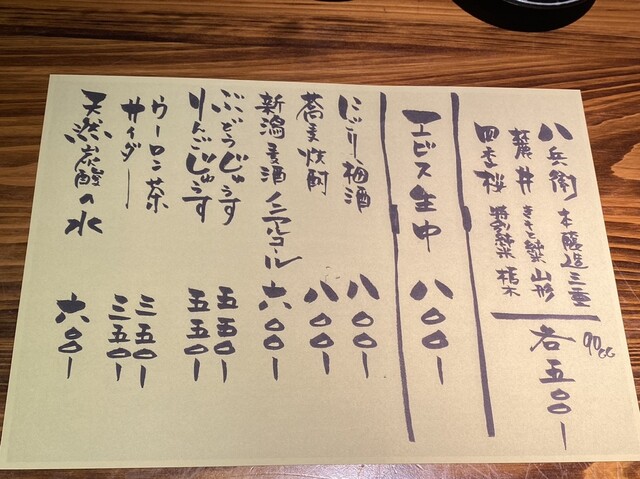 八兵衛 本醸造 三重
麓井 きもと純米 山形
四季桜 特別純米 栃木
90cc 各五〇〇ー
エビス生中 八〇〇ー
にごり梅酒 八〇〇ー
蕎麦焼酎 八〇〇ー
新潟麦酒ノンアルコール 六〇〇ー
ぶどうじゅうす 五五〇ー
りんごじゅうす 五五〇ー
ウーロン茶 三五〇ー
サイダー 三五〇ー
天然炭酸の水 六〇〇ー